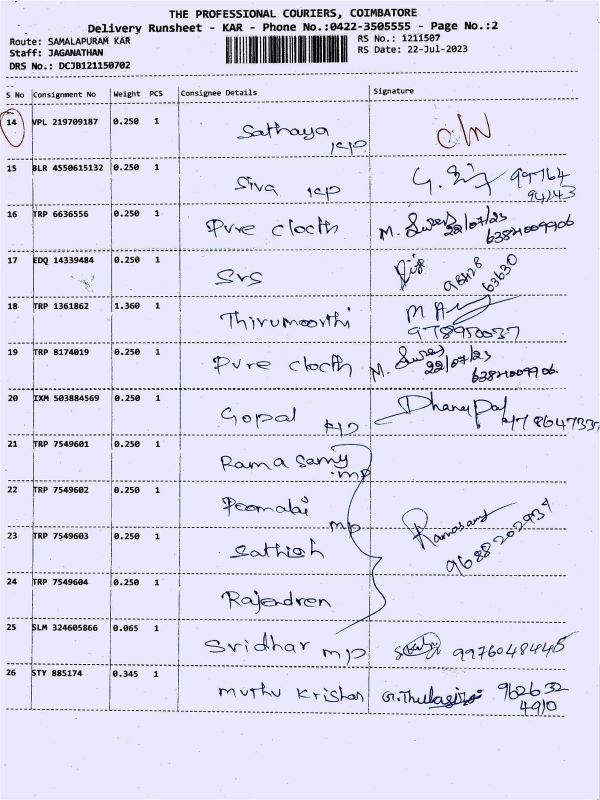 THE PROFESSIONAL COURIERS, COIMBATORE
Delivery Runsheet - KAR - Phone No.:0422-3505555 - Page No.:2
Route: SAMALAPURAM KAR
RS No.: 1211507
Staff: JAGANATHAN
RS Date: 22-Jul-2023
DRS No.: DCJB121150702
S No Consignment No Weight PCS Consignee Details Signature
14 VPL 219709187 0.250 1 Sathaya KP
15 BLR 4550615132 0.250 1 Siva KP 99764
94243
16 TRP 6636556 0.250 1 Pure Clocth M. Sures 22/07/23 6384009906
17 EDQ 14339484 0.250 1 SRS 63630
18 TRP 1361862 1.360 1 Thirumoorthi
9789500037
19 TRP 8174019 0.250 1 Pure Clocth M. Sures 22/07/23
20 IXM 503884569 0.250 1 Gopal KP Dhanapal
21 TRP 7549601 0.250 1 Rama Samy mp
22 TRP 7549602 0.250 1 Poomalai mp
23 TRP 7549603 0.250 1 Sathish Ramasamy 9688202934
24 TRP 7549604 0.250 1 Rajendren
25 SLM 324605866 0.065 1 Sridhar mp 9976048445
26 STY 885174 0.345 1 muthu Krishan G.Thulasi 962632
4910